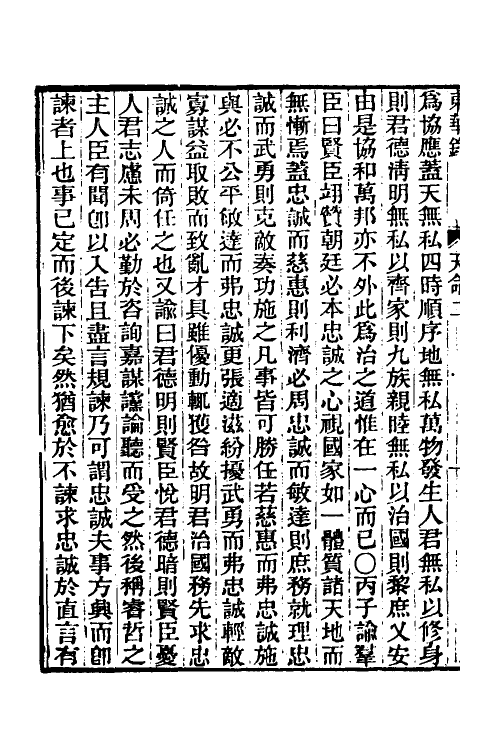 東華錄　天命二
爲協應蓋天無私四時順序地無私萬物發生人君無私以修身
則君德清明無私以齊家則九族親睦無私以治國則黎庶乂安
由是協和萬邦亦不外此爲治之道惟在一心而已○丙子諭羣
臣曰賢臣翊贊朝廷必本忠誠之心視國家如一體質諸天地而
無慚焉蓋忠誠而慈惠則利濟必周忠誠而敏達則庶務就理忠
誠而武勇則克敵奏功施之凡事皆可勝任若慈惠而弗忠誠施
與必不公平敏達而弗忠誠更張適滋紛擾武勇而弗忠誠輕敵
寡謀益取敗而致亂才具雖優動輒獲咎故明君治國務先求忠
誠之人而倚任之也又諭曰君德明則賢臣悅君德暗則賢臣憂
人君志慮未周必勤於咨詢嘉謀讜論聽而受之然後稱睿哲之
主人臣有聞卽以入告且盡言規諫乃可謂忠誠夫事方興而卽
諫者上也事已定而後諫下矣然猶愈於不諫求忠誠於直言有